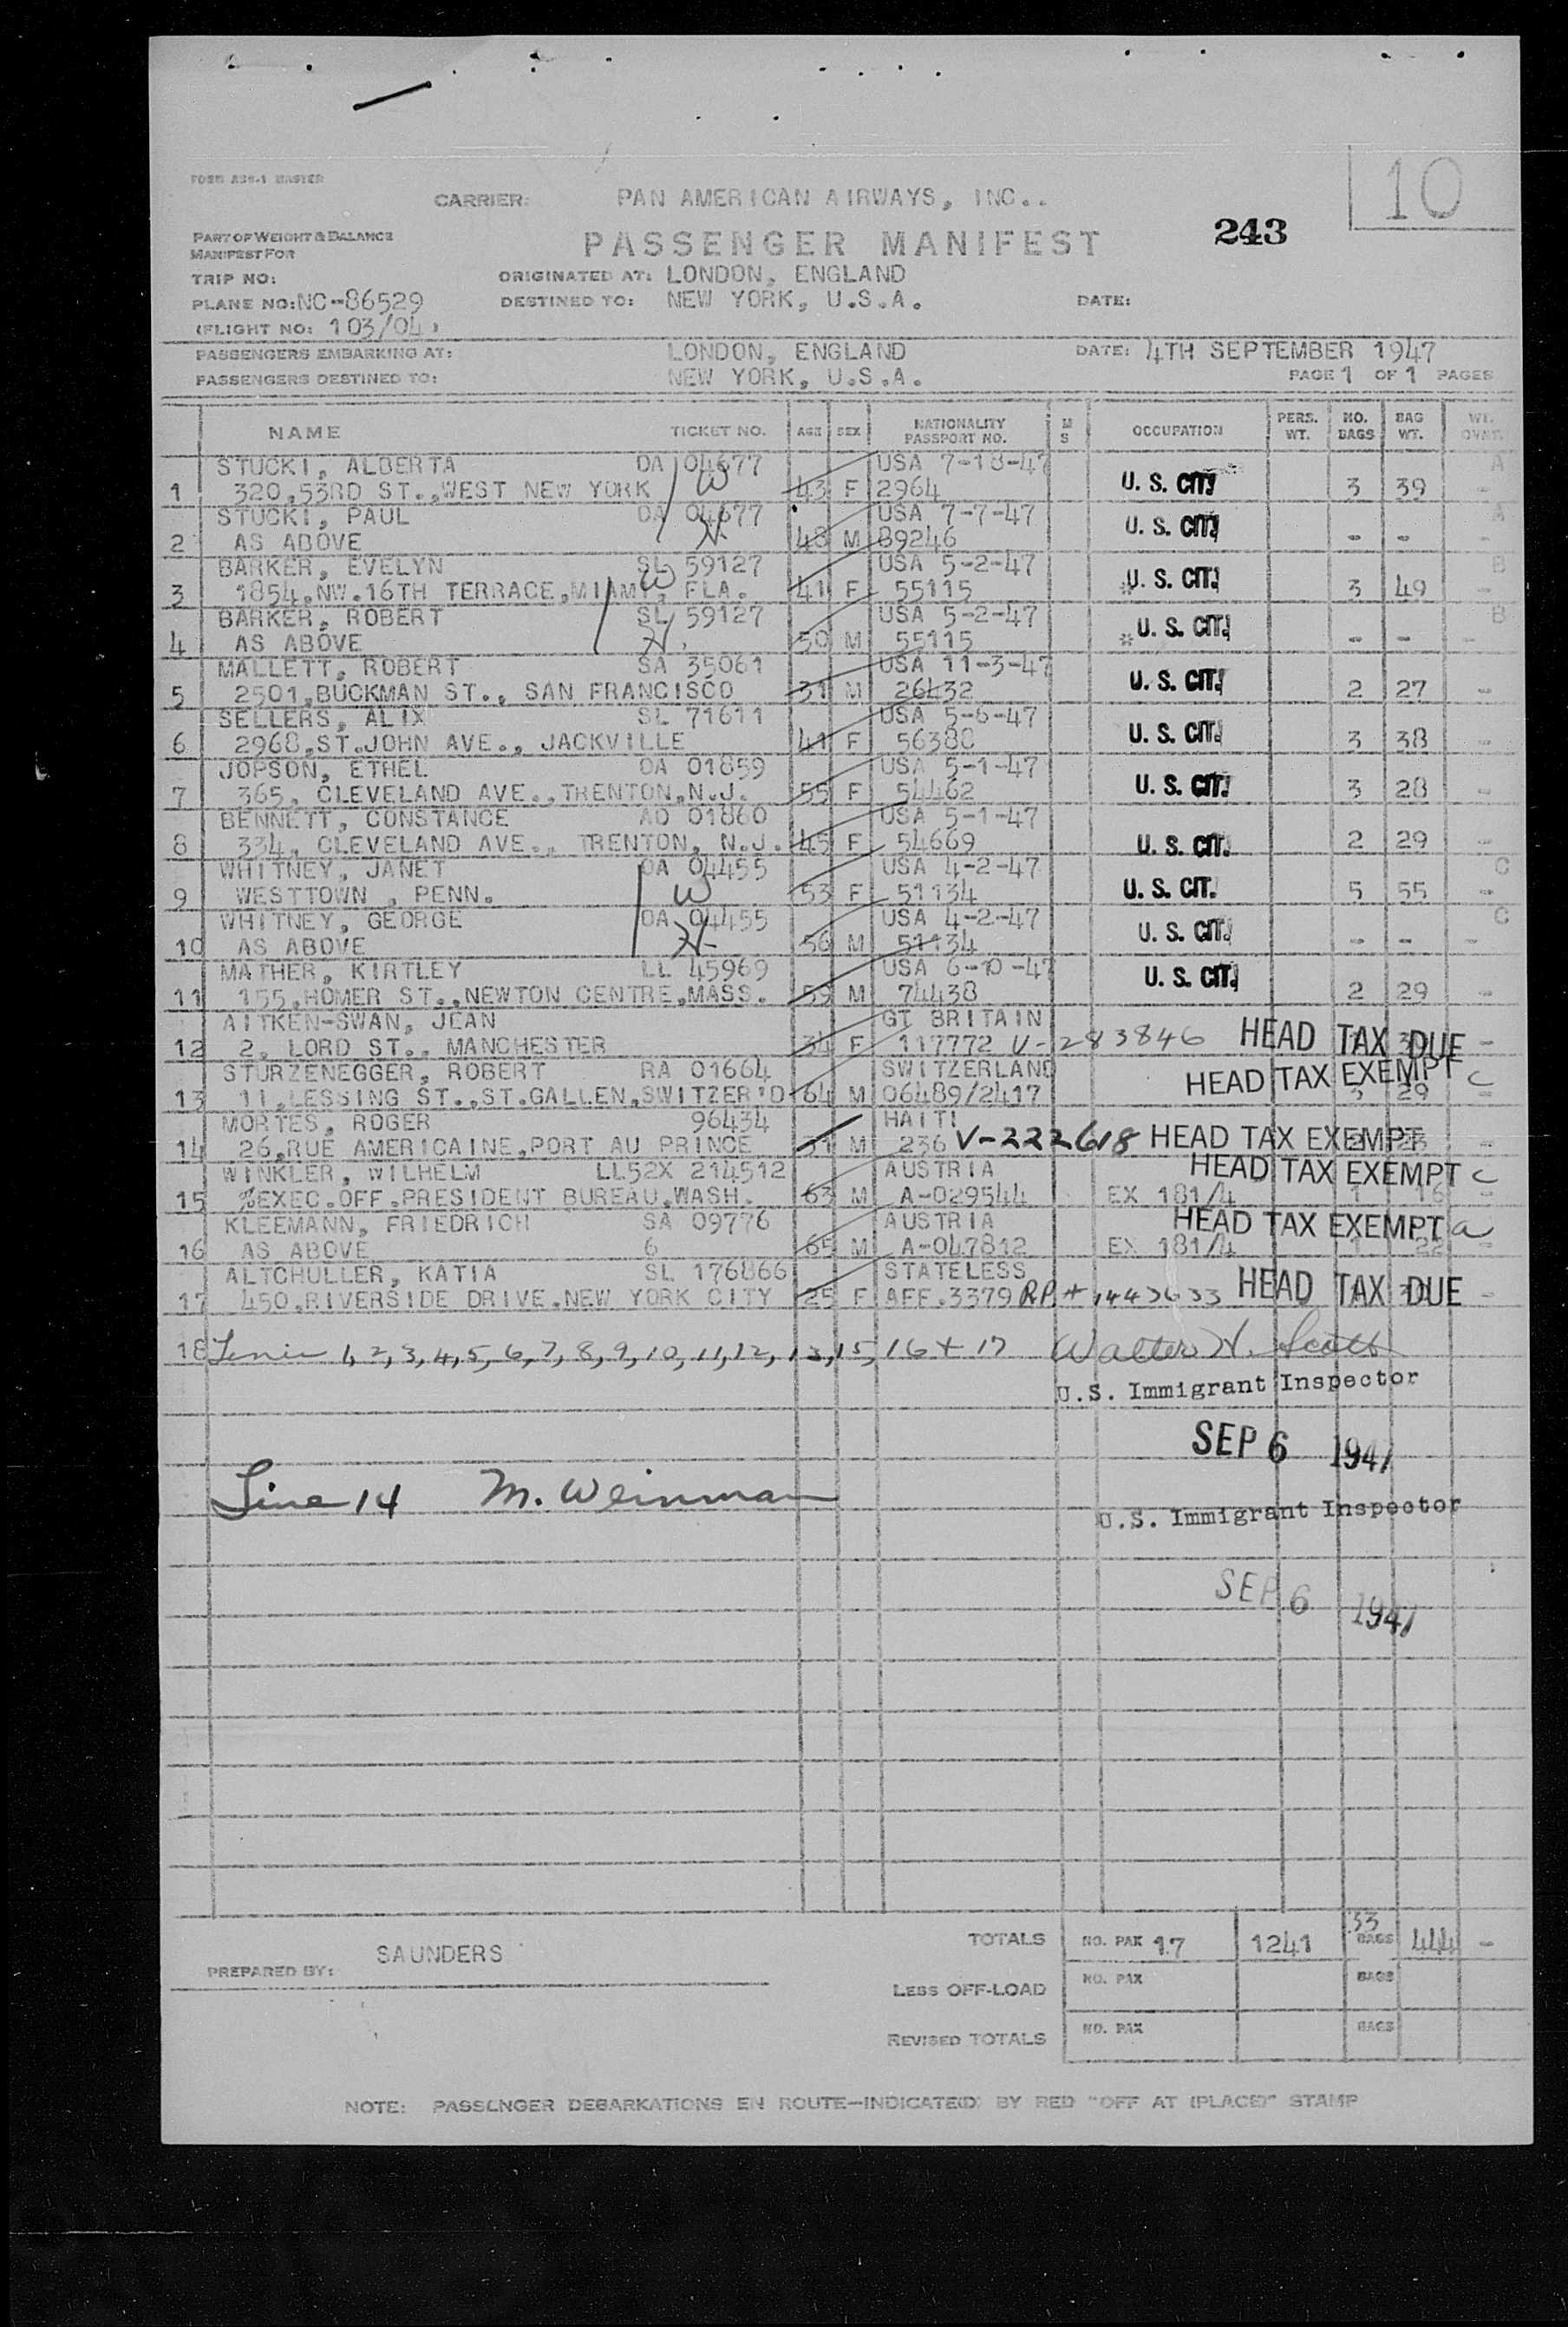 10
FORM ASS-1 MASTER
CARRIER: PAN AMERICAN AIRWAYS, INC..
243
PART OF WEIGHT & BALANCE
MANIFEST FOR
PASSENGER MANIFEST
TRIP NO: ORIGINATED AT: LONDON, ENGLAND
PLANE NO: NC-86529 DESTINED TO: NEW YORK, U.S.A. DATE:
(FLIGHT NO: 103/04)
PASSENGERS EMBARKING AT: LONDON, ENGLAND DATE: 4TH SEPTEMBER 1947
PASSENGERS DESTINED TO: NEW YORK, U.S.A. PAGE 1 OF 1 PAGES
NAME TICKET NO. AGE SEX NATIONALITY PASSPORT NO. M S OCCUPATION PERS. WT. NO. BAGS BAG WT. WT.
STUCKI, ALBERTA OA 04677 USA 7-18-47 A
1 320,53RD ST.,WEST NEW YORK W 43 F 2964 U. S. CIT. 3 39 -
STUCKI, PAUL OA 04677 USA 7-7-47 A
2 AS ABOVE H 48 M 89246 U. S. CIT. - - -
BARKER, EVELYN SL 59127 USA 5-2-47 B
3 1854,NW.16TH TERRACE,MIAMI, FLA. W 41 F 55115 U. S. CIT. 3 49 -
BARKER, ROBERT SL 59127 USA 5-2-47 B
4 AS ABOVE H. 50 M 55115 * U. S. CIT. - - -
MALLETT, ROBERT SA 35061 USA 11-3-47
5 2501,BUCKMAN ST., SAN FRANCISCO 31 M 26432 U. S. CIT. 2 27 -
SELLERS, ALIX SL 71611 USA 5-6-47
6 2968,ST.JOHN AVE., JACKVILLE 41 F 56380 U. S. CIT. 3 38 -
JOPSON, ETHEL OA 01859 USA 5-1-47
7 365, CLEVELAND AVE.,TRENTON,N.J. 55 F 54462 U. S. CIT. 3 28 -
BENNETT, CONSTANCE AO 01860 USA 5-1-47
8 334, CLEVELAND AVE., TRENTON, N.J. 45 F 54669 U. S. CIT. 2 29 -
WHITNEY, JANET OA 04455 USA 4-2-47 C
9 WESTTOWN , PENN. W 53 F 51134 U. S. CIT. 5 55 -
WHITNEY, GEORGE OA 04455 USA 4-2-47 C
10 AS ABOVE H 56 M 51134 U. S. CIT. - - -
MATHER, KIRTLEY LL 45969 USA 6-10-47
11 155,HOMER ST.,NEWTON CENTRE,MASS. 59 M 74438 U. S. CIT. 2 29 -
AITKEN-SWAN, JEAN GT BRITAIN
12 2, LORD ST., MANCHESTER 34 F 117772 V-283846 HEAD TAX DUE -
STURZENEGGER, ROBERT RA 01664 SWITZERLAND
13 11,LESSING ST.,ST.GALLEN,SWITZER'D 64 M 06489/2417 HEAD TAX EXEMPT C 3 29 -
MORTES, ROGER 96434 HAITI
14 26,RUE AMERICAINE,PORT AU PRINCE 31 M 236 V-222618 HEAD TAX EXEMPT -
WINKLER, WILHELM LL52X 214512 AUSTRIA HEAD TAX EXEMPT C
15 %EXEC.OFF.PRESIDENT BUREAU,WASH. 63 M A-029544 EX 181/4 1 16 -
KLEEMANN, FRIEDRICH SA 09776 AUSTRIA HEAD TAX EXEMPT a
16 AS ABOVE 6 65 M A-047812 EX 181/4 1 22 -
ALTCHULLER, KATIA SL 176866 STATELESS
17 450,RIVERSIDE DRIVE.NEW YORK CITY 25 F AFF.3379 R.P. # 1443633 HEAD TAX DUE -
18 1, 2, 3, 4, 5, 6, 7, 8, 9, 10, 11, 12, 13, 15, 16 + 17 Walter H. Scott
U.S. Immigrant Inspector
SEP 6 1947
Line 14 M. Weinman
U.S. Immigrant Inspector
SEP 6 1947
TOTALS NO. PAX 17 1241 33 BAGS 444 -
SAUNDERS
PREPARED BY:
LESS OFF-LOAD NO. PAX BAGS
REVISED TOTALS NO. PAX BAGS
NOTE: PASSENGER DEBARKATIONS EN ROUTE—INDICATE(D) BY RED "OFF AT (PLACE)" STAMP